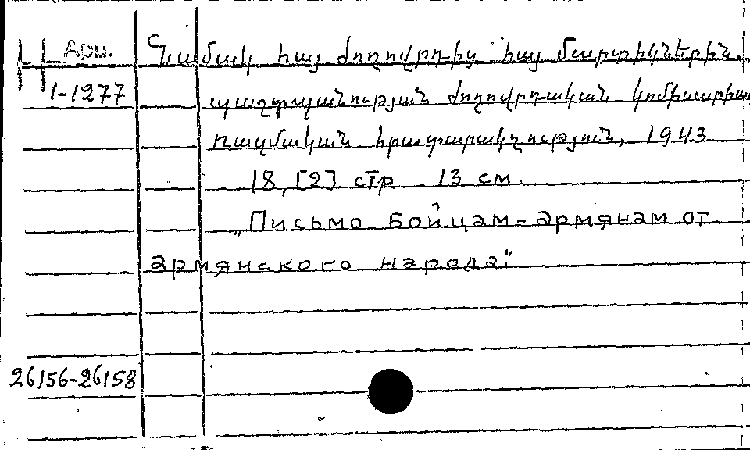 Арм. Նամակ հայ ժողովրդից հայ մարտիկներին.
1-1277 պաշտպանության ժողովրդական կոմիսարիա
ռազմական հրատարակչություն, 1943
18, [2] стр 13 см.
„Письмо бойцам-армянам от
армянского народа"
26156-26158